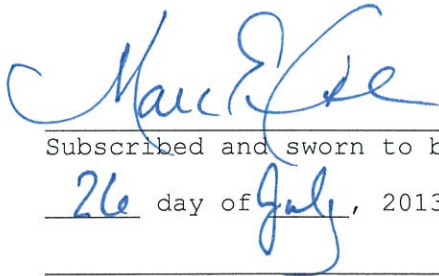 Marc E.
Subscribed and sworn to b
26 day of July, 2013